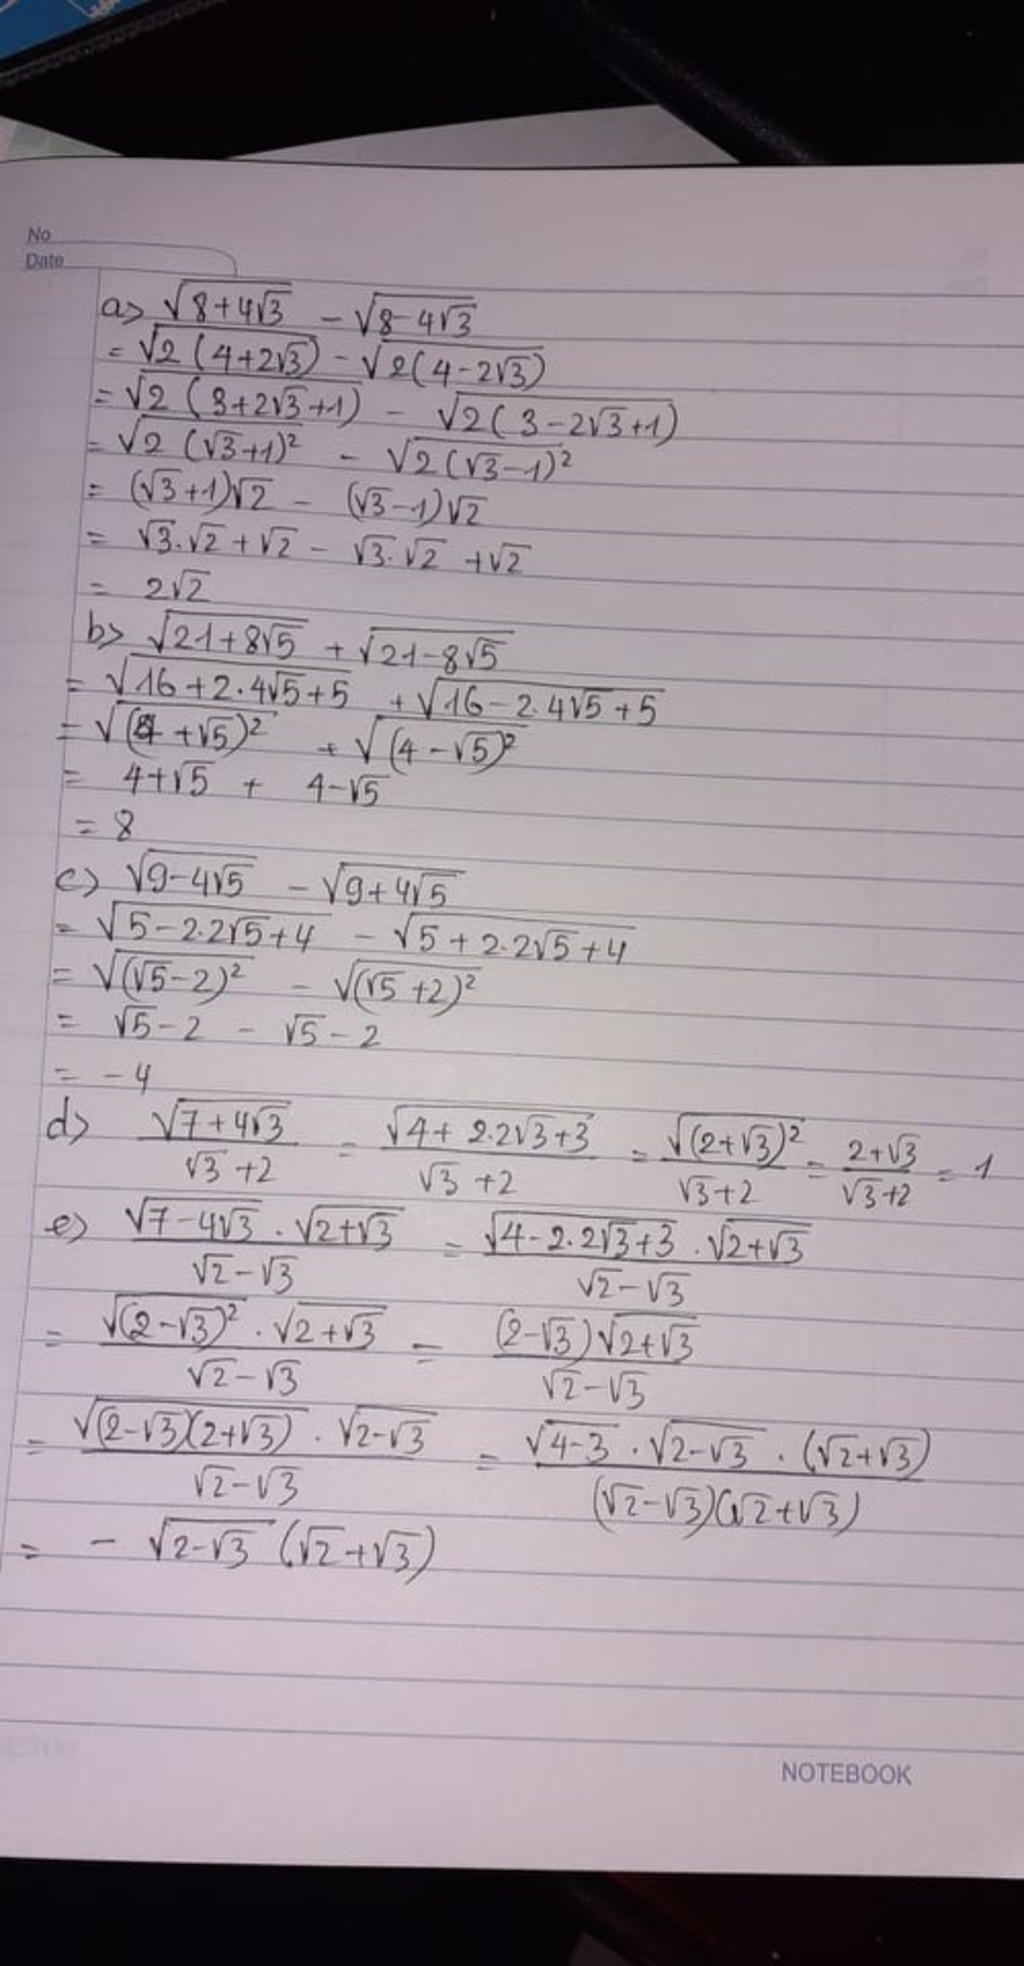 No
Date
a> √(8+4√3) - √(8-4√3)
= √(2(4+2√3)) - √(2(4-2√3))
= √(2(3+2√3+1)) - √(2(3-2√3+1))
= √(2(√3+1)²) - √(2(√3-1)²)
= (√3+1)√2 - (√3-1)√2
= √3.√2+√2 - √3.√2 +√2
= 2√2
b> √(21+8√5) + √(21-8√5)
= √(16+2.4√5+5) + √(16-2.4√5+5)
= √((4+√5)²) + √((4-√5)²)
= 4+√5 + 4-√5
= 8
c) √(9-4√5) - √(9+4√5)
= √(5-2.2√5+4) - √(5+2.2√5+4)
= √((√5-2)²) - √((√5+2)²)
= √5-2 - √5-2
= -4
d> √(7+4√3)/(√3+2) = √(4+2.2√3+3)/(√3+2) = √((2+√3)²)/(√3+2) = (2+√3)/(√3+2) = 1
e) (√(7-4√3) . √(2+√3))/(√2-√3) = (√(4-2.2√3+3) . √(2+√3))/(√2-√3)
= (√((2-√3)²) . √(2+√3))/(√2-√3) = ((2-√3)√(2+√3))/(√2-√3)
= (√((2-√3)(2+√3)) . √(2-√3))/(√2-√3) = (√(4-3) . √(2-√3) . (√2+√3))/((√2-√3)(√2+√3))
= - √(2-√3) (√2+√3)
NOTEBOOK